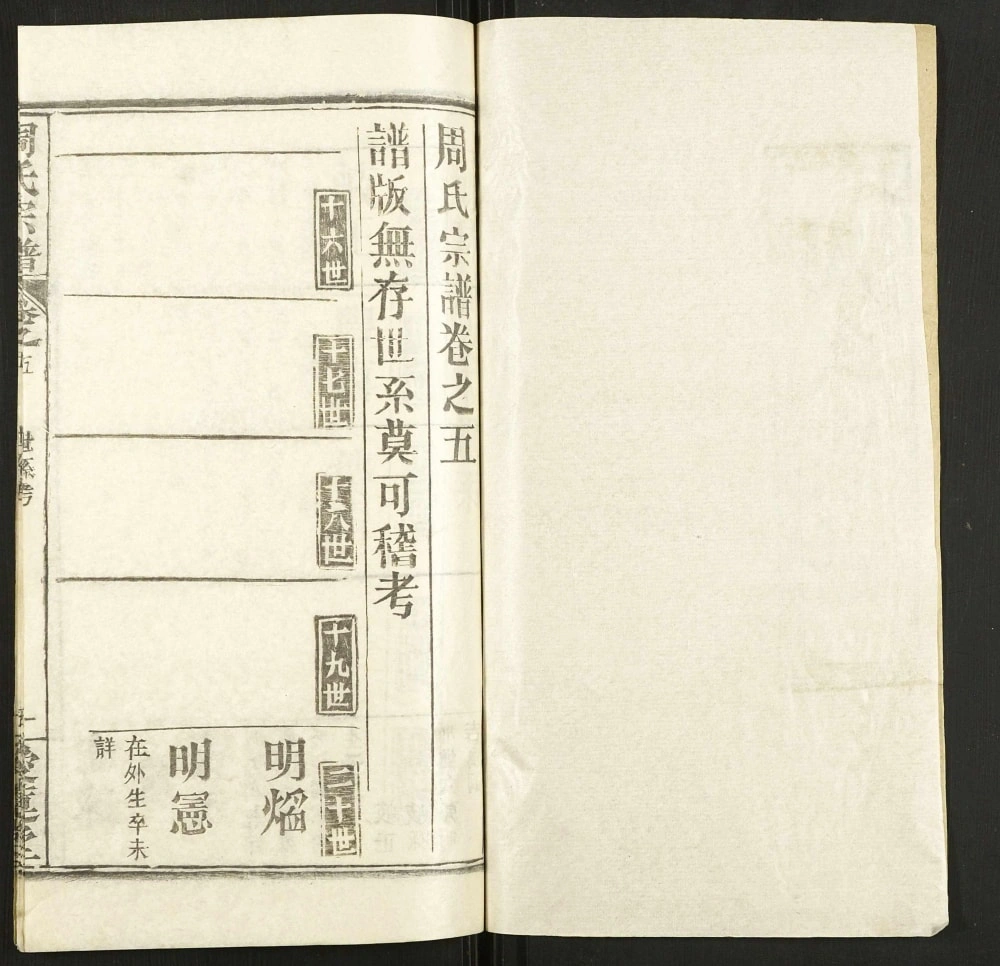 周氏宗譜卷之五
譜版無存世系莫可稽考
十六世
十七世
十八世
十九世
二十世
明熖
明憲
在外生卒未
詳
周氏宗譜
卷之五
世系考
愛蓮堂